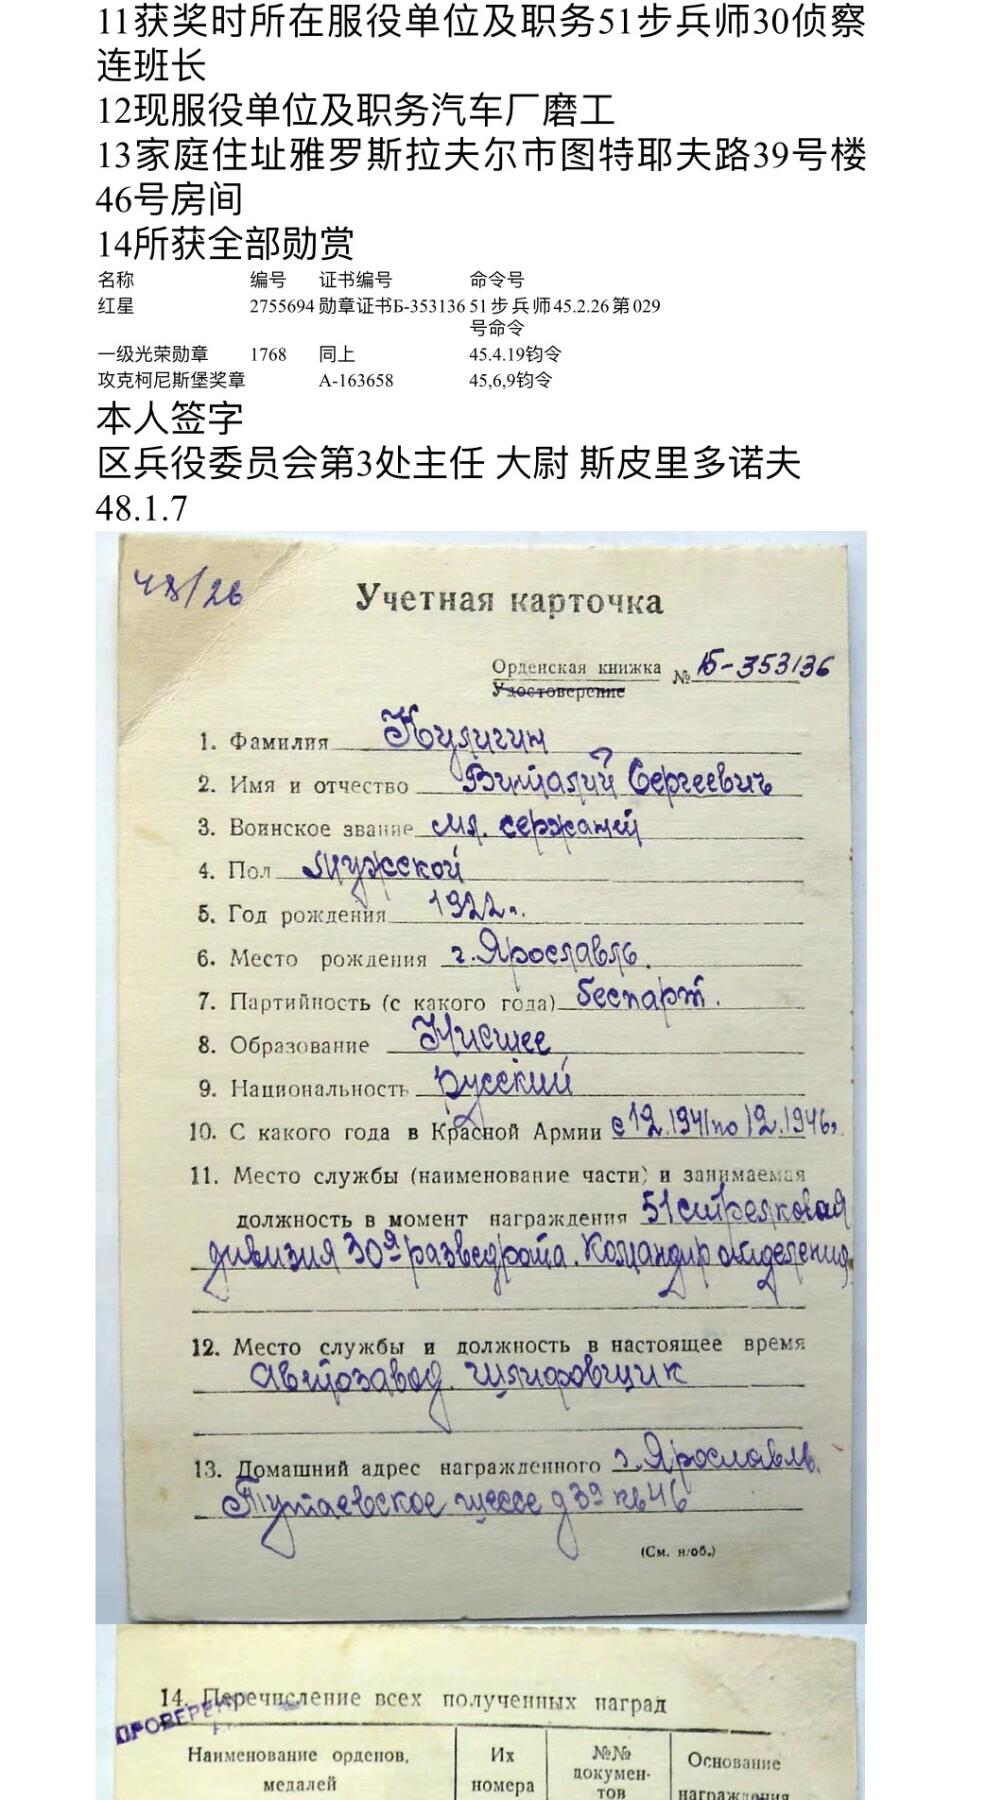 11获奖时所在服役单位及职务51步兵师30侦察
连班长
12现服役单位及职务汽车厂磨工
13家庭住址雅罗斯拉夫尔市图特耶夫路39号楼
46号房间
14所获全部勋赏
名称 编号 证书编号 命令号
红星 2755694 勋章证书Б-353136 51步兵师45.2.26第029
号命令
一级光荣勋章 1768 同上 45.4.19钧令
攻克柯尼斯堡奖章 А-163658 45,6,9钧令
本人签字
区兵役委员会第3处主任 大尉 斯皮里多诺夫
48.1.7
48/26
Учетная карточка
Орденская книжка № Б-353136
Удостоверение
1. Фамилия Кулигин
2. Имя и отчество Виталий Сергеевич
3. Воинское звание мл. сержант
4. Пол Мужской
5. Год рождения 1922 г.
6. Место рождения г. Ярославль.
7. Партийность (с какого года) беспарт.
8. Образование Низшее
9. Национальность русский
10. С какого года в Красной Армии с 12.1941 по 12.1946г.
11. Место службы (наименование части) и занимаемая
должность в момент награждения 51 стрелковая
дивизия 30я разведрота. Командир отделения
12. Место службы и должность в настоящее время
Автозавод. шлифовщик
13. Домашний адрес награжденного г. Ярославль.
Тутаевское шоссе д 39 кв 46
(См. н/об.)
14. Перечисление всех полученных наград
ПРОВЕРЕНО
Наименование орденов, Их №№ Основание
медалей номера докумен- награждения
тов